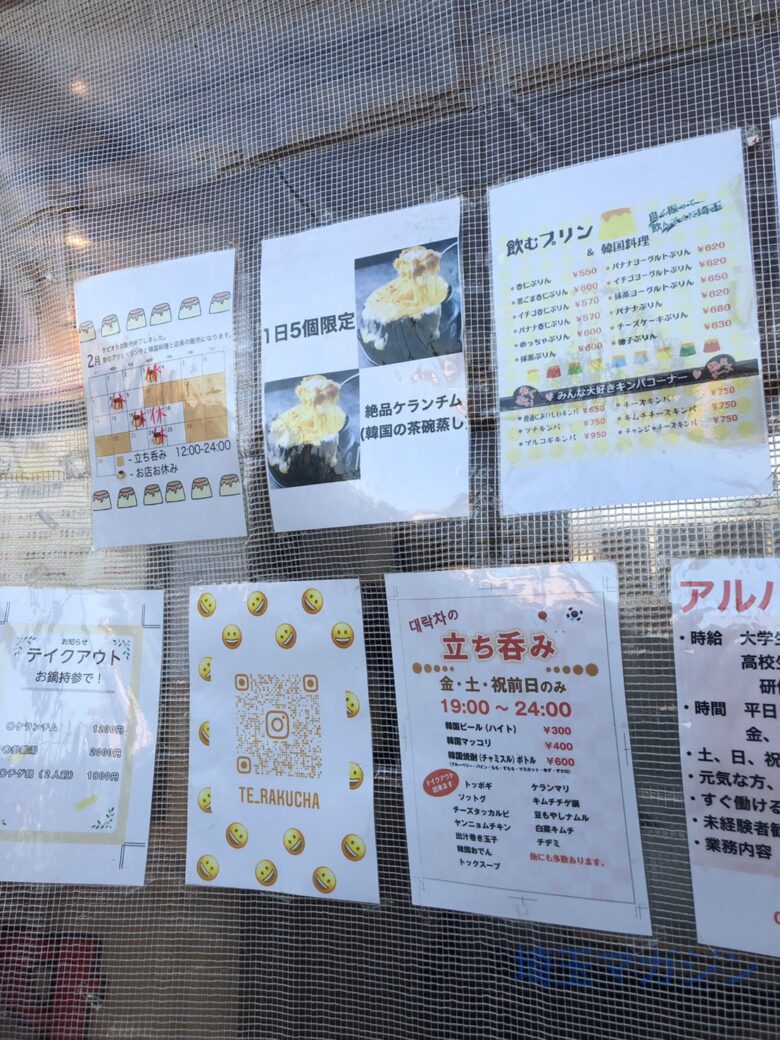 タピオカの販売終了しました。
飲むプリンドリンクと韓国料理と店長の販売になります。
2月
- 立ち呑み 12:00-24:00
- お店お休み
1日5個限定
絶品ケランチム
(韓国の茶碗蒸し
飲むプリン
& 韓国料理
・杏仁ぷりん ¥550
・黒ごま杏仁ぷりん ¥600
・イチゴ杏仁ぷりん ¥570
・バナナ杏仁ぷりん ¥570
・めっちゃぷりん ¥600
・抹茶ぷりん ¥600
・バナナヨーグルトぷりん ¥620
・イチゴヨーグルトぷりん ¥620
・抹茶ヨーグルトぷりん ¥650
・バナナぷりん ¥620
・チーズケーキぷりん ¥680
・柚子ぷりん ¥630
みんな大好きキンパコーナー
・普通においしいキンパ ¥650
・ツナキンパ ¥750
・プルコギキンパ ¥950
・チーズキンパ ¥750
・キムチチーズキンパ ¥750
・チャンジャチーズキンパ ¥750
お知らせ
テイクアウト
お鍋持参で!
○ケランチム 1200円
2000円
○チゲ鍋(2人前) 1800円
TE_RAKUCHA
대락차の
立ち呑み
金・土・祝前日のみ
19:00 ~ 24:00
韓国ビール(ハイト) ¥300
韓国マッコリ ¥400
韓国焼酎(チャミスル)ボトル ¥600
テイクアウト
出来ます
トッポギ
ソットク
チーズタッカルビ
ヤンニョムチキン
出汁巻き玉子
韓国おでん
トックスープ
ケランマリ
キムチチゲ鍋
豆もやしナムル
白菜キムチ
チヂミ
他にも多数あります。
アルバ
・時給 大学生
高校生
研修
・時間 平日
金、
・土、日、祝
・元気な方、
・すぐ働ける
・未経験者歓
・業務内容
埼玉マガジン